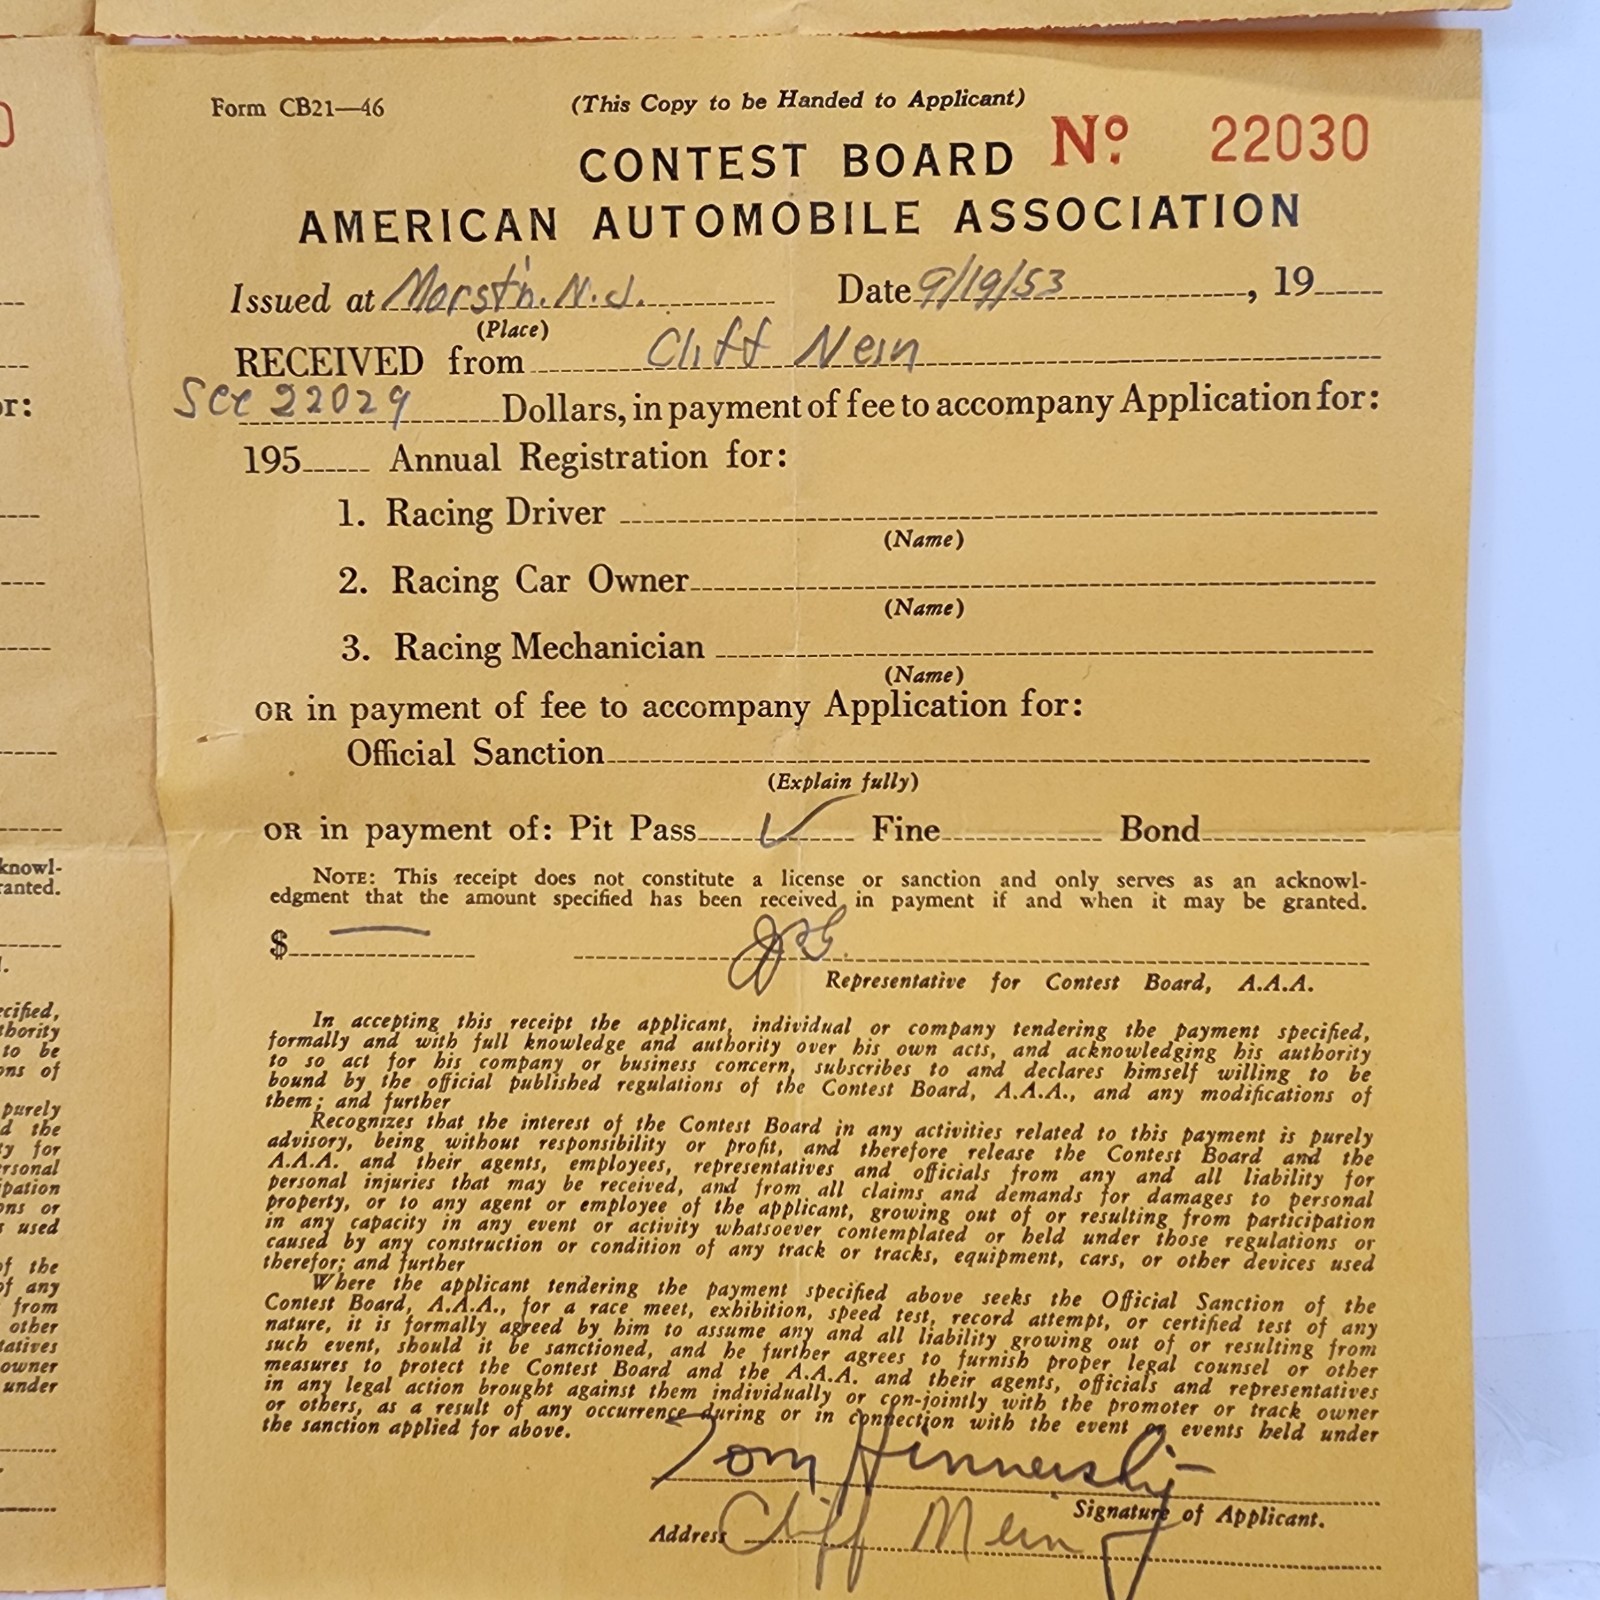 Form CB21—46
(This Copy to be Handed to Applicant)
CONTEST BOARD Nº 22030
AMERICAN AUTOMOBILE ASSOCIATION
Issued at Morst'n. N.J. Date 9/19/53, 19
(Place)
RECEIVED from Cliff Nein
See 22029 Dollars, in payment of fee to accompany Application for:
195 Annual Registration for:
1. Racing Driver
(Name)
2. Racing Car Owner
(Name)
3. Racing Mechanician
(Name)
OR in payment of fee to accompany Application for:
Official Sanction
(Explain fully)
OR in payment of: Pit Pass ✓ Fine Bond
NOTE: This receipt does not constitute a license or sanction and only serves as an acknowl-
edgment that the amount specified has been received in payment if and when it may be granted.
$ —
Representative for Contest Board, A.A.A.
In accepting this receipt the applicant, individual or company tendering the payment specified,
formally and with full knowledge and authority over his own acts, and acknowledging his authority
to so act for his company or business concern, subscribes to and declares himself willing to be
bound by the official published regulations of the Contest Board, A.A.A., and any modifications of
them; and further
Recognizes that the interest of the Contest Board in any activities related to this payment is purely
advisory, being without responsibility or profit, and therefore release the Contest Board and the
A.A.A. and their agents, employees, representatives and officials from any and all liability for
personal injuries that may be received, and from all claims and demands for damages to personal
property, or to any agent or employee of the applicant, growing out of or resulting from participation
in any capacity in any event or activity whatsoever contemplated or held under those regulations or
caused by any construction or condition of any track or tracks, equipment, cars, or other devices used
therefor; and further
Where the applicant tendering the payment specified above seeks the Official Sanction of the
Contest Board, A.A.A., for a race meet, exhibition, speed test, record attempt, or certified test of any
nature, it is formally agreed by him to assume any and all liability growing out of or resulting from
such event, should it be sanctioned, and he further agrees to furnish proper legal counsel or other
measures to protect the Contest Board and the A.A.A. and their agents, officials and representatives
in any legal action brought against them individually or con-jointly with the promoter or track owner
or others, as a result of any occurrence during or in connection with the event or events held under
the sanction applied for above.
Tom Hinnershitz
Signature of Applicant.
Address Cliff Nein